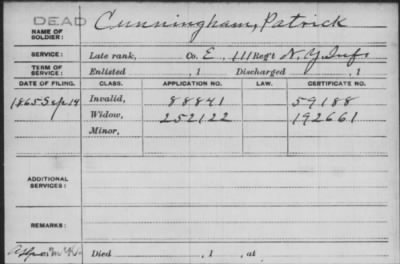 DEAD
NAME OF SOLDIER: Cunningham, Patrick
SERVICE: Late rank, Co. E, 111 Reg't N.Y. Inf.
TERM OF SERVICE: Enlisted , 1 Discharged , 1
DATE OF FILING. CLASS. APPLICATION NO. LAW. CERTIFICATE NO.
1865 Sep 14 Invalid, 88841 59188
Widow, 252122 192661
Minor,
ADDITIONAL SERVICES:
REMARKS:
Died , 1 , at